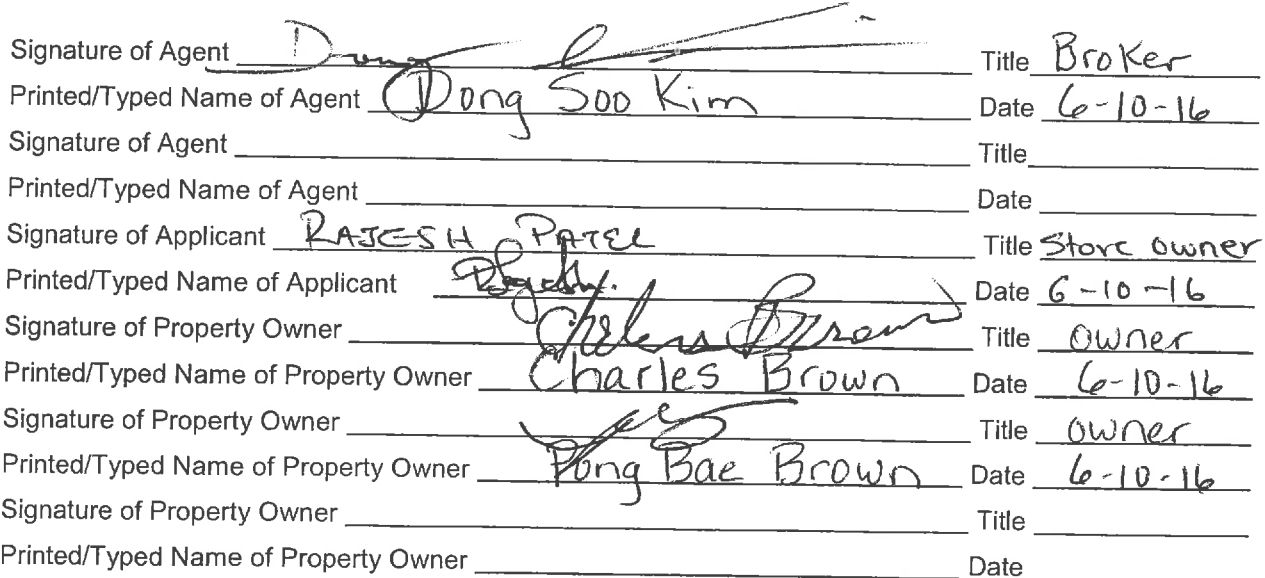 Signature of Agent Title Broker
Printed/Typed Name of Agent Dong Soo Kim Date 6-10-16
Signature of Agent Title
Printed/Typed Name of Agent Date
Signature of Applicant RAJESH PATEL Title Store owner
Printed/Typed Name of Applicant Date 6-10-16
Signature of Property Owner Charles Brown Title owner
Printed/Typed Name of Property Owner Charles Brown Date 6-10-16
Signature of Property Owner Title owner
Printed/Typed Name of Property Owner Pong Bae Brown Date 6-10-16
Signature of Property Owner Title
Printed/Typed Name of Property Owner Date